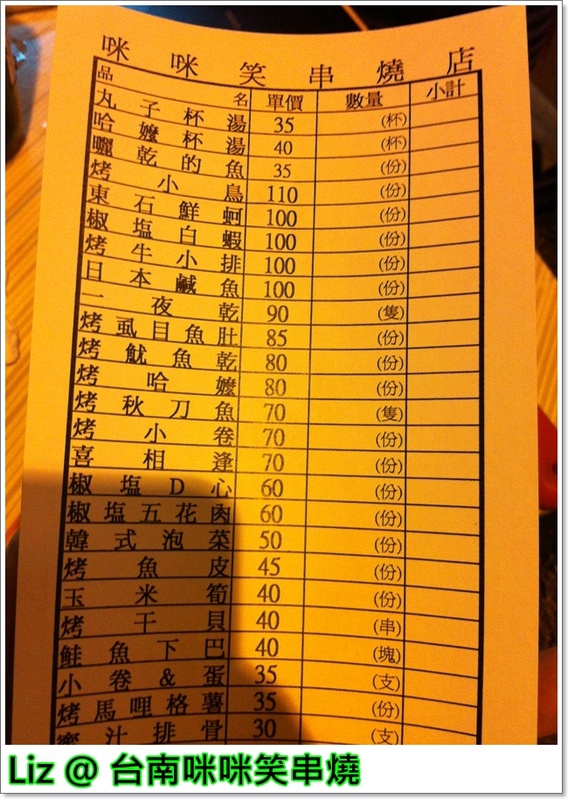 咪咪笑串燒店
品名 單價 數量 小計
丸子杯湯 35 (杯)
哈嬤杯湯 40 (杯)
曬乾的魚 35 (份)
烤小鳥 110 (份)
東石鮮蚵 100 (份)
椒塩白蝦 100 (份)
烤牛小排 100 (份)
日本鹹魚 100 (份)
一夜乾 90 (隻)
烤虱目魚肚 85 (份)
烤魷魚乾 80 (份)
烤哈嬤 80 (份)
烤秋刀魚 70 (隻)
烤小卷 70 (份)
喜相逢 70 (份)
椒塩D心 60 (份)
椒塩五花肉 60 (份)
韓式泡菜 50 (份)
烤魚皮 45 (份)
玉米筍 40 (份)
烤干貝 40 (串)
鮭魚下巴 40 (塊)
小卷&蛋 35 (支)
烤馬哩格薯 35 (份)
蜜汁排骨 30 (支)
Liz @ 台南咪咪笑串燒